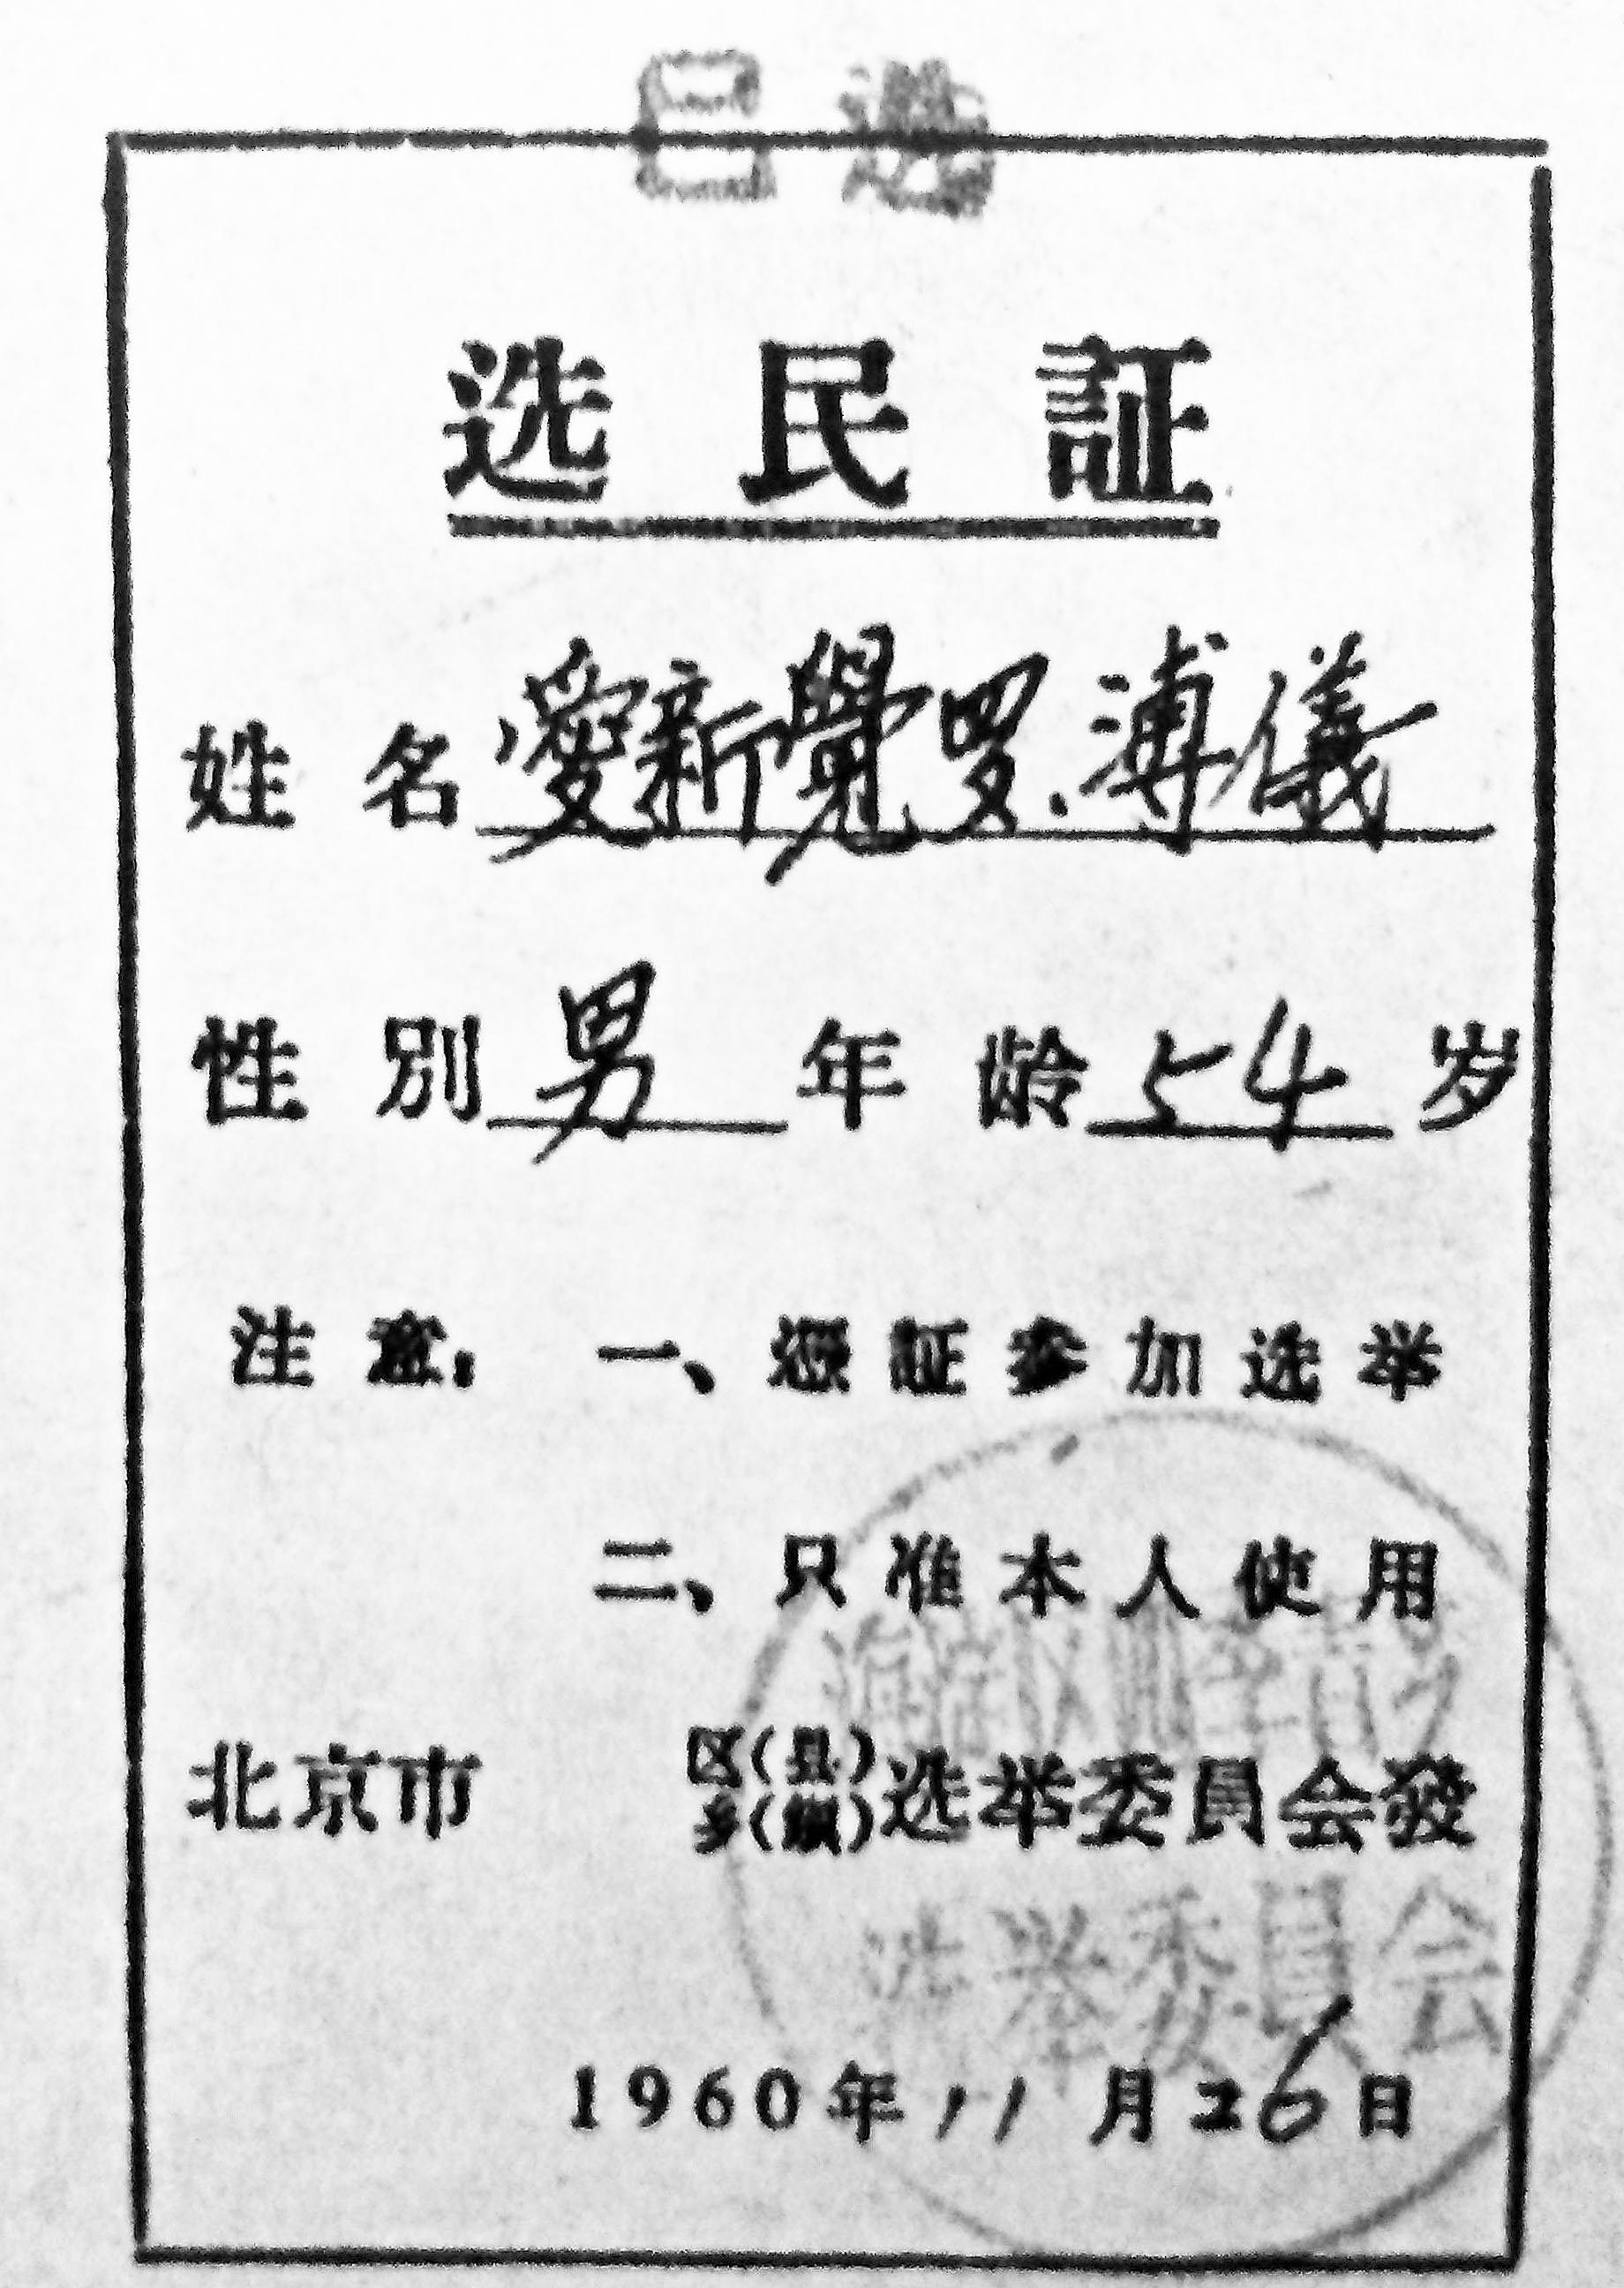 选民証
姓名 愛新覺罗.溥儀
性别 男 年龄 54 岁
注意：一、凭証参加选举
二、只准本人使用
北京市 区(县) 乡(镇) 选举委員会發
选举委員会
1960年11月26日